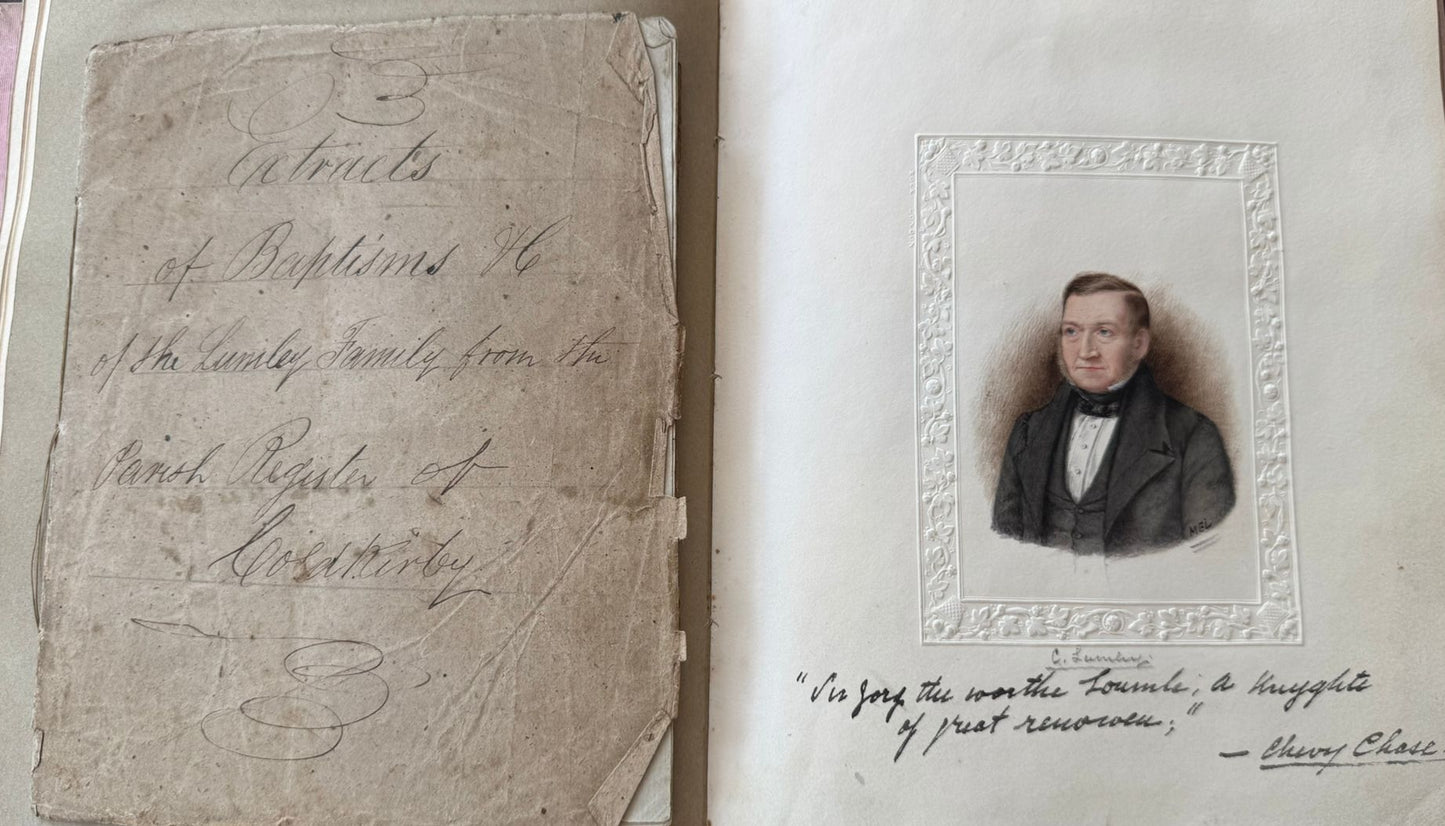 Extracts
of Baptisms &c
of the Lumley Family from the
Parish Register of
Coldkirby
MEL
C. Lumley.
"Sir Jorg the worthe Loumle, a knyghte
of great renowen;"
— Chevy Chase